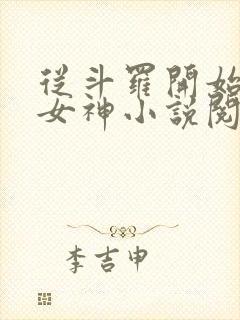 從斗羅開始
女神小說閱
李吉申